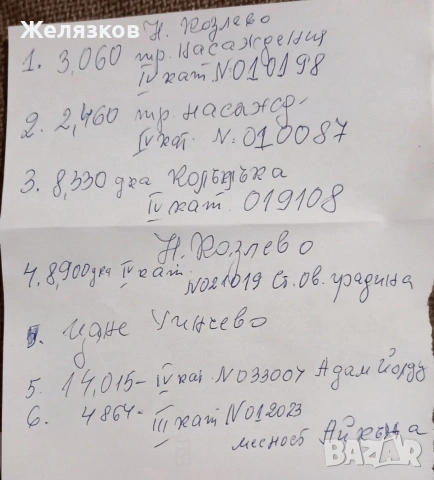 Желязков
Н. Козлево
1. 3,060 тр. насаждения
IV кат N 010198
2. 2,460 тр. насажд.
IV кат. N: 010087
3. 8,330 дка
IV кат. 019108
Н. Козлево
4. 8,900 дка IV кат.
N 021019 Ст. ов. градина
5. 14,015 - IV кат. N 033007 Адам
6. 4864 - III кат N 012023
месност
bazar.bg